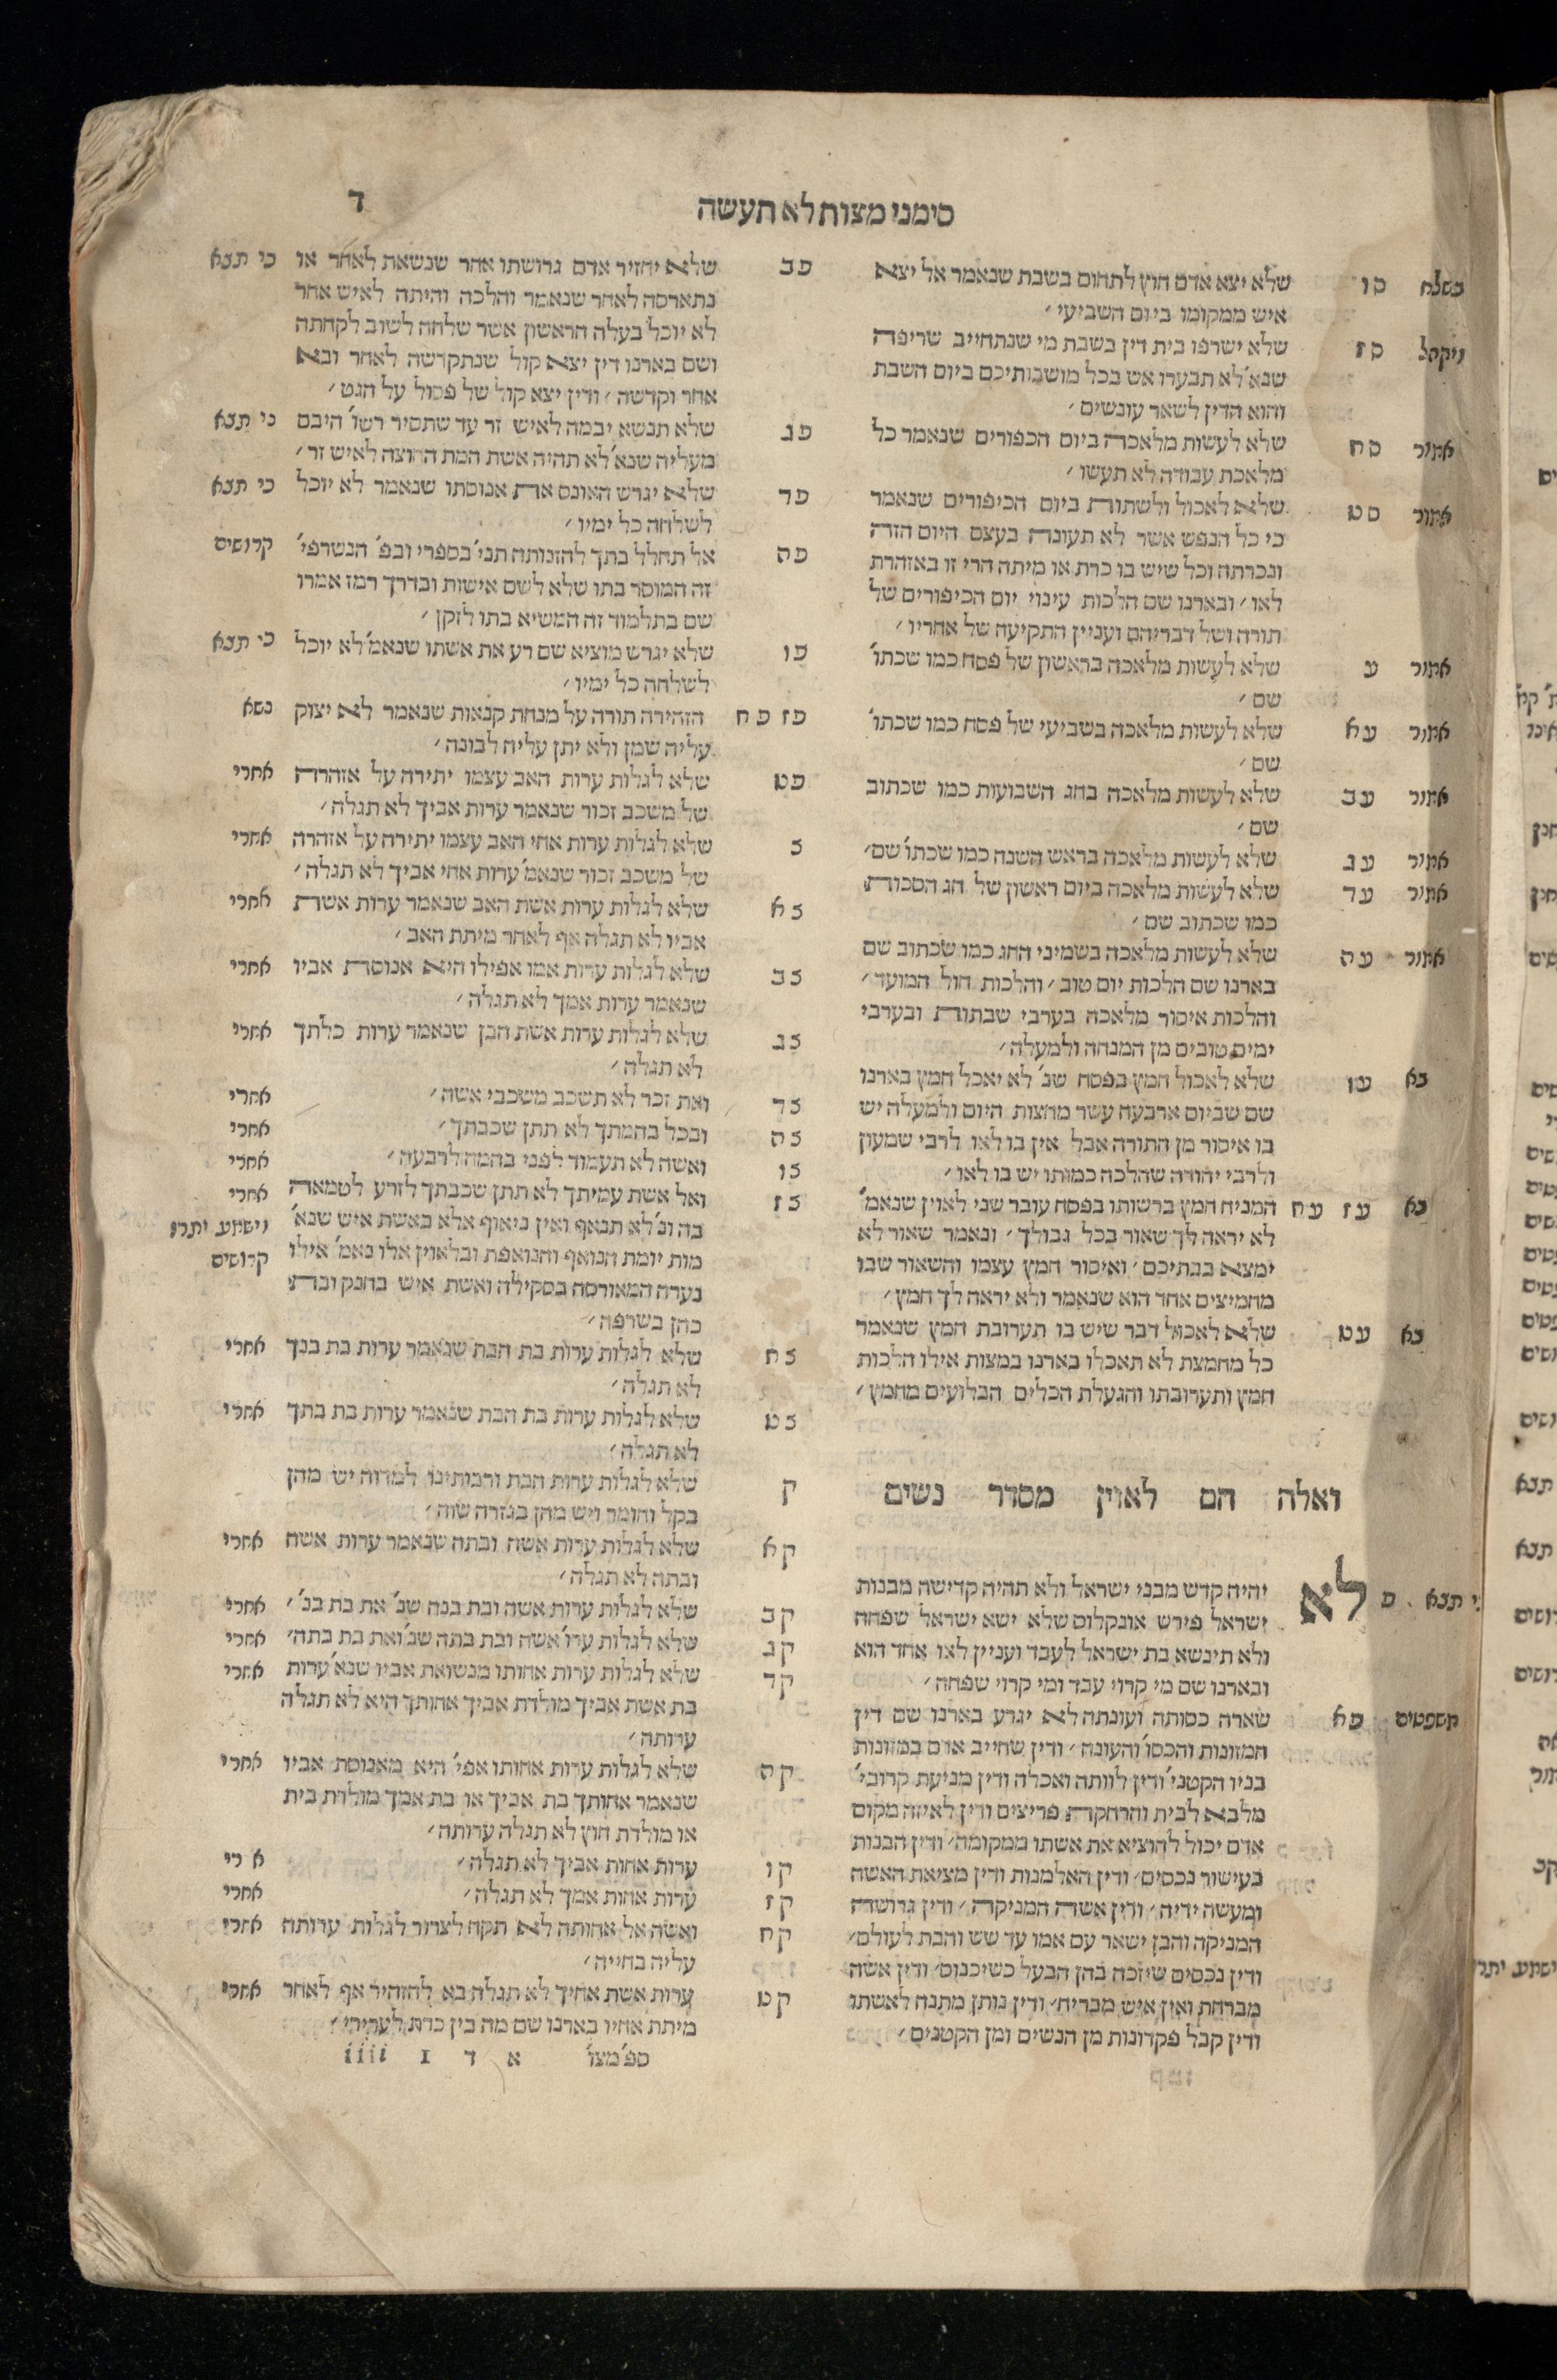 סימני מצות לא תעשה
ד
בשלח סו שלא יצא אדם חוץ לתחום בשבת שנאמר אל יצא
איש ממקומו ביום השביעי׳
ויקהל סז שלא ישרפו בית דין בשבת מי שנתחייב שריפה
שנא׳ לא תבערו אש בכל מושבותיכם ביום השבת
והוא הדין לשאר עונשים׳
אמור סח שלא לעשות מלאכה ביום הכפורים שנאמר כל
מלאכת עבודה לא תעשו׳
אמור סט שלא לאכול ולשתות ביום הכיפורים שנאמר
כי כל הנפש אשר לא תעונה בעצם היום הזה
ונכרתה וכל שיש בו כרת או מיתה הרי זו באזהרת
לאו׳ ובארנו שם הלכות עינוי יום הכיפורים של
תורה ושל דבריהם ועניין התקיעה של אחריו׳
אמור ע שלא לעשות מלאכה בראשון של פסח כמו שכתו׳
שם׳
אמור עא שלא לעשות מלאכה בשביעי של פסח כמו שכתו׳
שם׳
אמור עב שלא לעשות מלאכה בחג השבועות כמו שכתוב
שם׳
אמור עג שלא לעשות מלאכה בראש השנה כמו שכתו׳ שם׳
אמור עד שלא לעשות מלאכה ביום ראשון של חג הסכות
כמו שכתוב שם׳
אמור עה שלא לעשות מלאכה בשמיני החג כמו שכתוב שם
בארנו שם הלכות יום טוב׳ והלכות חול המועד׳
והלכות איסור מלאכה בערבי שבתות ובערבי
ימים טובים מן המנחה ולמעלה׳
בא עו שלא לאכול חמץ בפסח שנ׳ לא יאכל חמץ בארנו
שם שביום ארבעה עשר מחצות היום ולמעלה יש
בו איסור מן התורה אבל אין בו לאו לרבי שמעון
ולרבי יהודה שהלכה כמותו יש בו לאו׳
בא עז עח המניח חמץ ברשותו בפסח עובר שני לאוין שנאמ׳
לא יראה לך שאור בכל גבולך׳ ונאמר שאור לא
ימצא בבתיכם׳ ואיסור חמץ עצמו והשאור שבו
מחמיצים אחד הוא שנאמר ולא יראה לך חמץ׳
בא עט שלא לאכול דבר שיש בו תערובת חמץ שנאמר
כל מחמצת לא תאכלו בארנו במצות אילו הלכות
חמץ ותערובתו והגעלת הכלים הבלועים מחמץ׳
ואלה הם לאוין מסדר נשים
כי תבא פ לא יהיה קדש מבני ישראל ולא תהיה קדישה מבנות
ישראל פירש אונקלוס שלא ישא ישראל שפחה
ולא תינשא בת ישראל לעבד ועניין לאו אחד הוא
ובארנו שם מי קרוי עבד ומי קרוי שפחה׳
משפטים פא שארה כסותה ועונתה לא יגרע בארנו שם דין
המזונות והכסו׳ והעונה׳ ודין שחייב אדם במזונות
בניו הקטני׳ ודין לוותה ואכלה ודין מניעת קרובי׳
מלבא לבית והרחקת פריצים ודין לאיזה מקום
אדם יכול להוציא את אשתו ממקומה׳ ודין הבנות
בעישור נכסים׳ ודין האלמנות ודין מציאת האשה
ומעשה ידיה׳ ודין אשה המניקה׳ ודין גרושה
המניקה והבן ישאר עם אמו עד שש והבת לעולם׳
ודין נכסים שיזכה בהן הבעל כשיכנוס׳ ודין אשה
מברחת ואין איש מבריח׳ ודין נותן מתנה לאשתו
ודין קבל פקדונות מן הנשים ומן הקטנים׳
פב שלא יחזיר אדם גרושתו אחר שנשאת לאחר או כי תבא
נתארסה לאחר שנאמר והלכה והיתה לאיש אחר
לא יוכל בעלה הראשון אשר שלחה לשוב לקחתה
ושם בארנו דין יצא קול שנתקדשה לאחר ובא
אחר וקדשה׳ ודין יצא קול של פסול על הגט׳
פג שלא תנשא יבמה לאיש זר עד שתסיר רשו׳ היבם כי תבא
מעליה שנא׳ לא תהיה אשת המת החוצה לאיש זר׳
פד שלא יגרש האונס את אנוסתו שנאמר לא יוכל כי תבא
לשלחה כל ימיו׳
פה אל תחלל בתך להזנותה תני׳ בספרי ובפ׳ הנשרפי׳ קדושים
זה המוסר בתו שלא לשם אישות ובדרך רמז אמרו
שם בתלמוד זה המשיא בתו לזקן׳
פו שלא יגרש מוציא שם רע את אשתו שנאמ׳ לא יוכל כי תבא
לשלחה כל ימיו׳
פז פח הזהירה תורה על מנחת קנאות שנאמר לא יצוק נשא
עליה שמן ולא יתן עליה לבונה׳
פט שלא לגלות ערות האב עצמו יתירה על אזהרה אחרי
של משכב זכור שנאמר ערות אביך לא תגלה׳
צ שלא לגלות ערות אחי האב עצמו יתירה על אזהרה אחרי
של משכב זכור שנאמ׳ ערות אחי אביך לא תגלה׳
צא שלא לגלות ערות אשת האב שנאמר ערות אשת אחרי
אביו לא תגלה אף לאחר מיתת האב׳
צב שלא לגלות ערות אמו אפילו היא אנוסת אביו אחרי
שנאמר ערות אמך לא תגלה׳
צג שלא לגלות ערות אשת הבן שנאמר ערות כלתך אחרי
לא תגלה׳
צד ואת זכר לא תשכב משכבי אשה׳ אחרי
צה ובכל בהמתך לא תתן שכבתך׳ אחרי
צו ואשה לא תעמוד לפני בהמה לרבעה׳ אחרי
צז ואל אשת עמיתך לא תתן שכבתך לזרע לטמאה אחרי
בה ונ׳ לא תנאף ואין ניאוף אלא באשת איש שנא׳ וישמע יתרו
מות יומת הנואף והנואפת ובלאוין אלו נאמ׳ אילו קדושים
נערה המאורסה בסקילה ואשת איש בחנק ובת
כהן בשרפה׳
צח שלא לגלות ערות בת הבת שנאמר ערות בת בנך אחרי
לא תגלה׳
צט שלא לגלות ערות בת הבת שנאמר ערות בת בתך אחרי
לא תגלה׳
ק שלא לגלות ערות הבת ורבותינו למדוה יש מהן
בקל וחומר ויש מהן בגזרה שוה׳
קא שלא לגלות ערות אשה ובתה שנאמר ערות אשה אחרי
ובתה לא תגלה׳
קב שלא לגלות ערות אשה ובת בנה שנ׳ את בת בנ׳׳ אחרי
קג שלא לגלות ערו׳ אשה ובת בתה שנ׳ ואת בת בתה׳ אחרי
קד שלא לגלות ערות אחותו מנשואת אביו שנא׳ ערות אחרי
בת אשת אביך מולדת אביך אחותך היא לא תגלה
ערותה׳
קה שלא לגלות ערות אחותו אפי׳ היא מאנוסת אביו אחרי
שנאמר אחותך בת אביך או בת אמך מולדת בית
או מולדת חוץ לא תגלה ערותה׳
קו ערות אחות אביך לא תגלה׳ א רי
קז ערות אחות אמך לא תגלה׳ אחרי
קח ואשה אל אחותה לא תקח לצרור לגלות ערותה אחרי
עליה בחייה׳
קט ערות אשת אחיך לא תגלה בא להזהיר אף לאחר אחרי
מיתת אחיו בארנו שם מה בין כרת לערירי׳
ספ׳ מצו׳ א ד 1 iiii